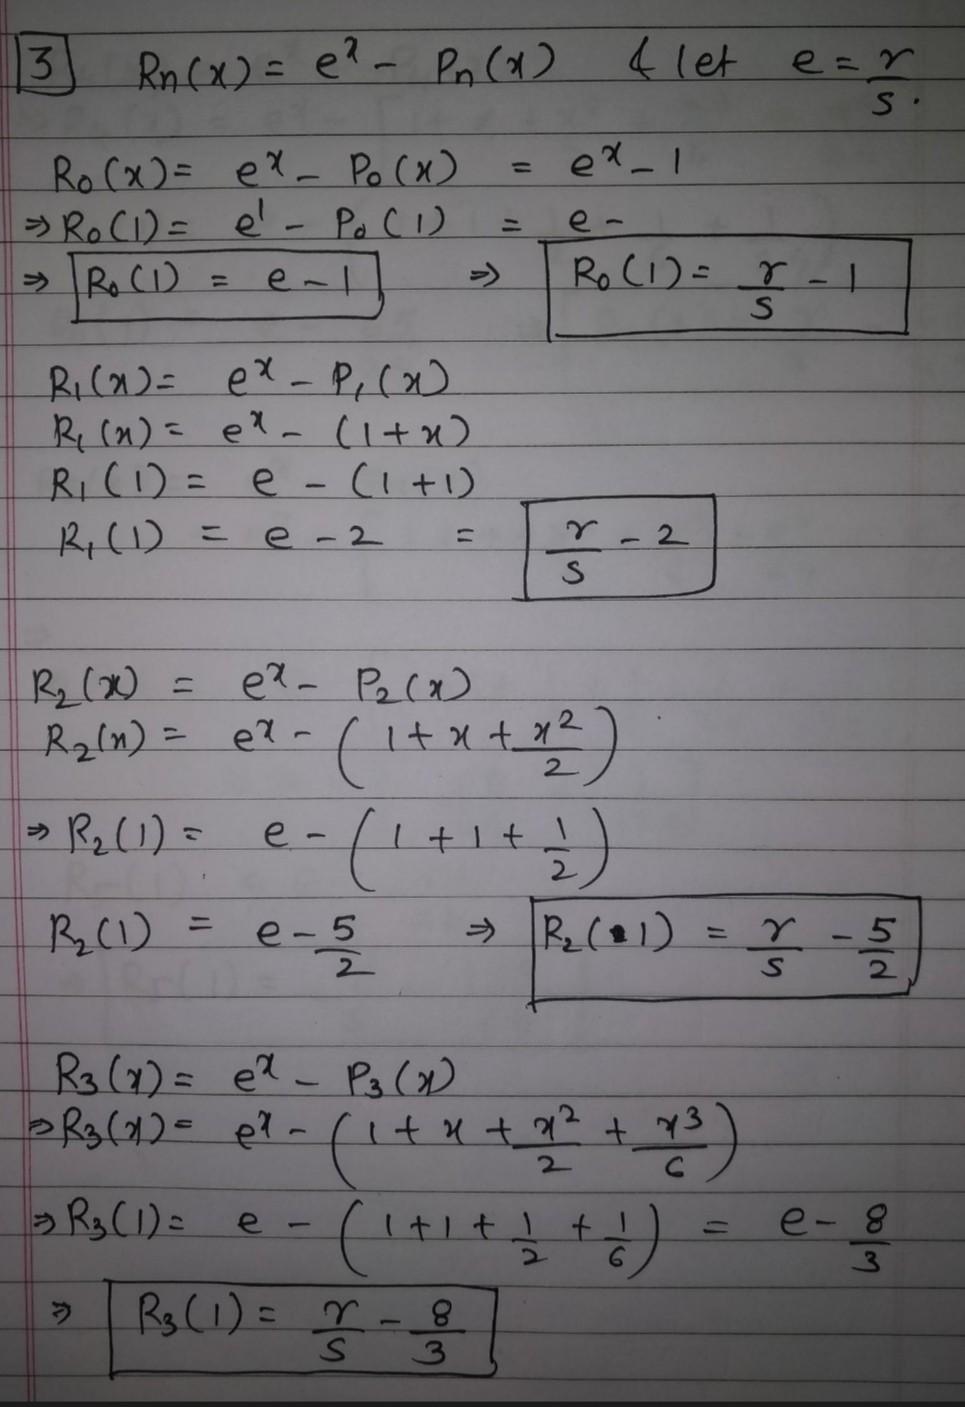 3 Rn(x) = e^x - Pn(x) & let e = r/s.
R0(x) = e^x - P0(x) = e^x - 1
⇒ R0(1) = e^1 - P0(1) = e -
⇒ R0(1) = e - 1 ⇒ R0(1) = r/s - 1
R1(x) = e^x - P1(x)
R1(x) = e^x - (1 + x)
R1(1) = e - (1 + 1)
R1(1) = e - 2 = r/s - 2
R2(x) = e^x - P2(x)
R2(x) = e^x - (1 + x + x^2/2)
⇒ R2(1) = e - (1 + 1 + 1/2)
R2(1) = e - 5/2 ⇒ R2(1) = r/s - 5/2
R3(x) = e^x - P3(x)
⇒ R3(x) = e^x - (1 + x + x^2/2 + x^3/6)
⇒ R3(1) = e - (1 + 1 + 1/2 + 1/6) = e - 8/3
⇒ R3(1) = r/s - 8/3